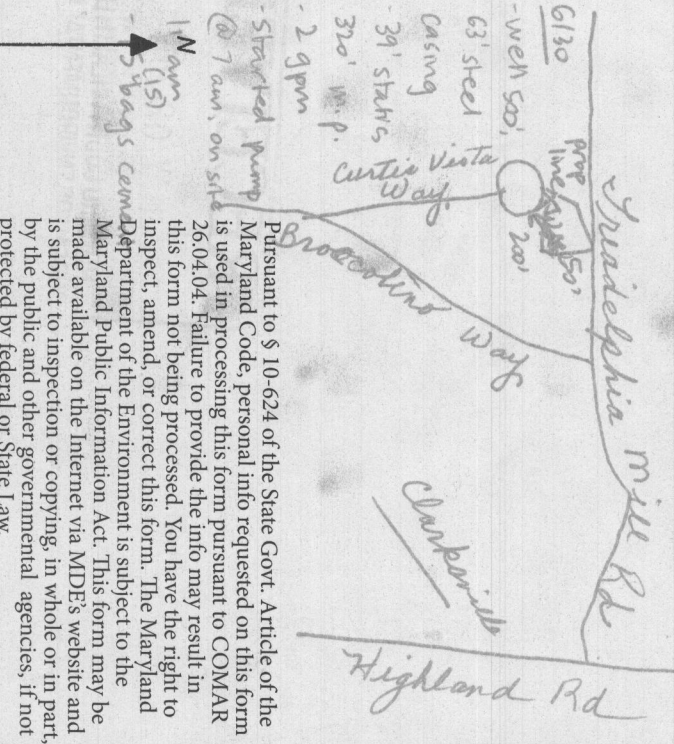 6/30
- well 500',
63' steel
casing
- 39' static
320' m.p.
- 2 gpm
- Started pump
@ 7 am, on site
am
(15)
bags
N
Triadelphia Mill Rd
prop
line
50'
20'
Curtis Vista
Way
Broccolino Way
Clarksville
Highland Rd
Pursuant to § 10-624 of the State Govt. Article of the
Maryland Code, personal info requested on this form
is used in processing this form pursuant to COMAR
26.04.04. Failure to provide the info may result in
this form not being processed. You have the right to
inspect, amend, or correct this form. The Maryland
Department of the Environment is subject to the
Maryland Public Information Act. This form may be
made available on the Internet via MDE's website and
is subject to inspection or copying, in whole or in part,
by the public and other governmental agencies, if not
protected by federal or State Law.